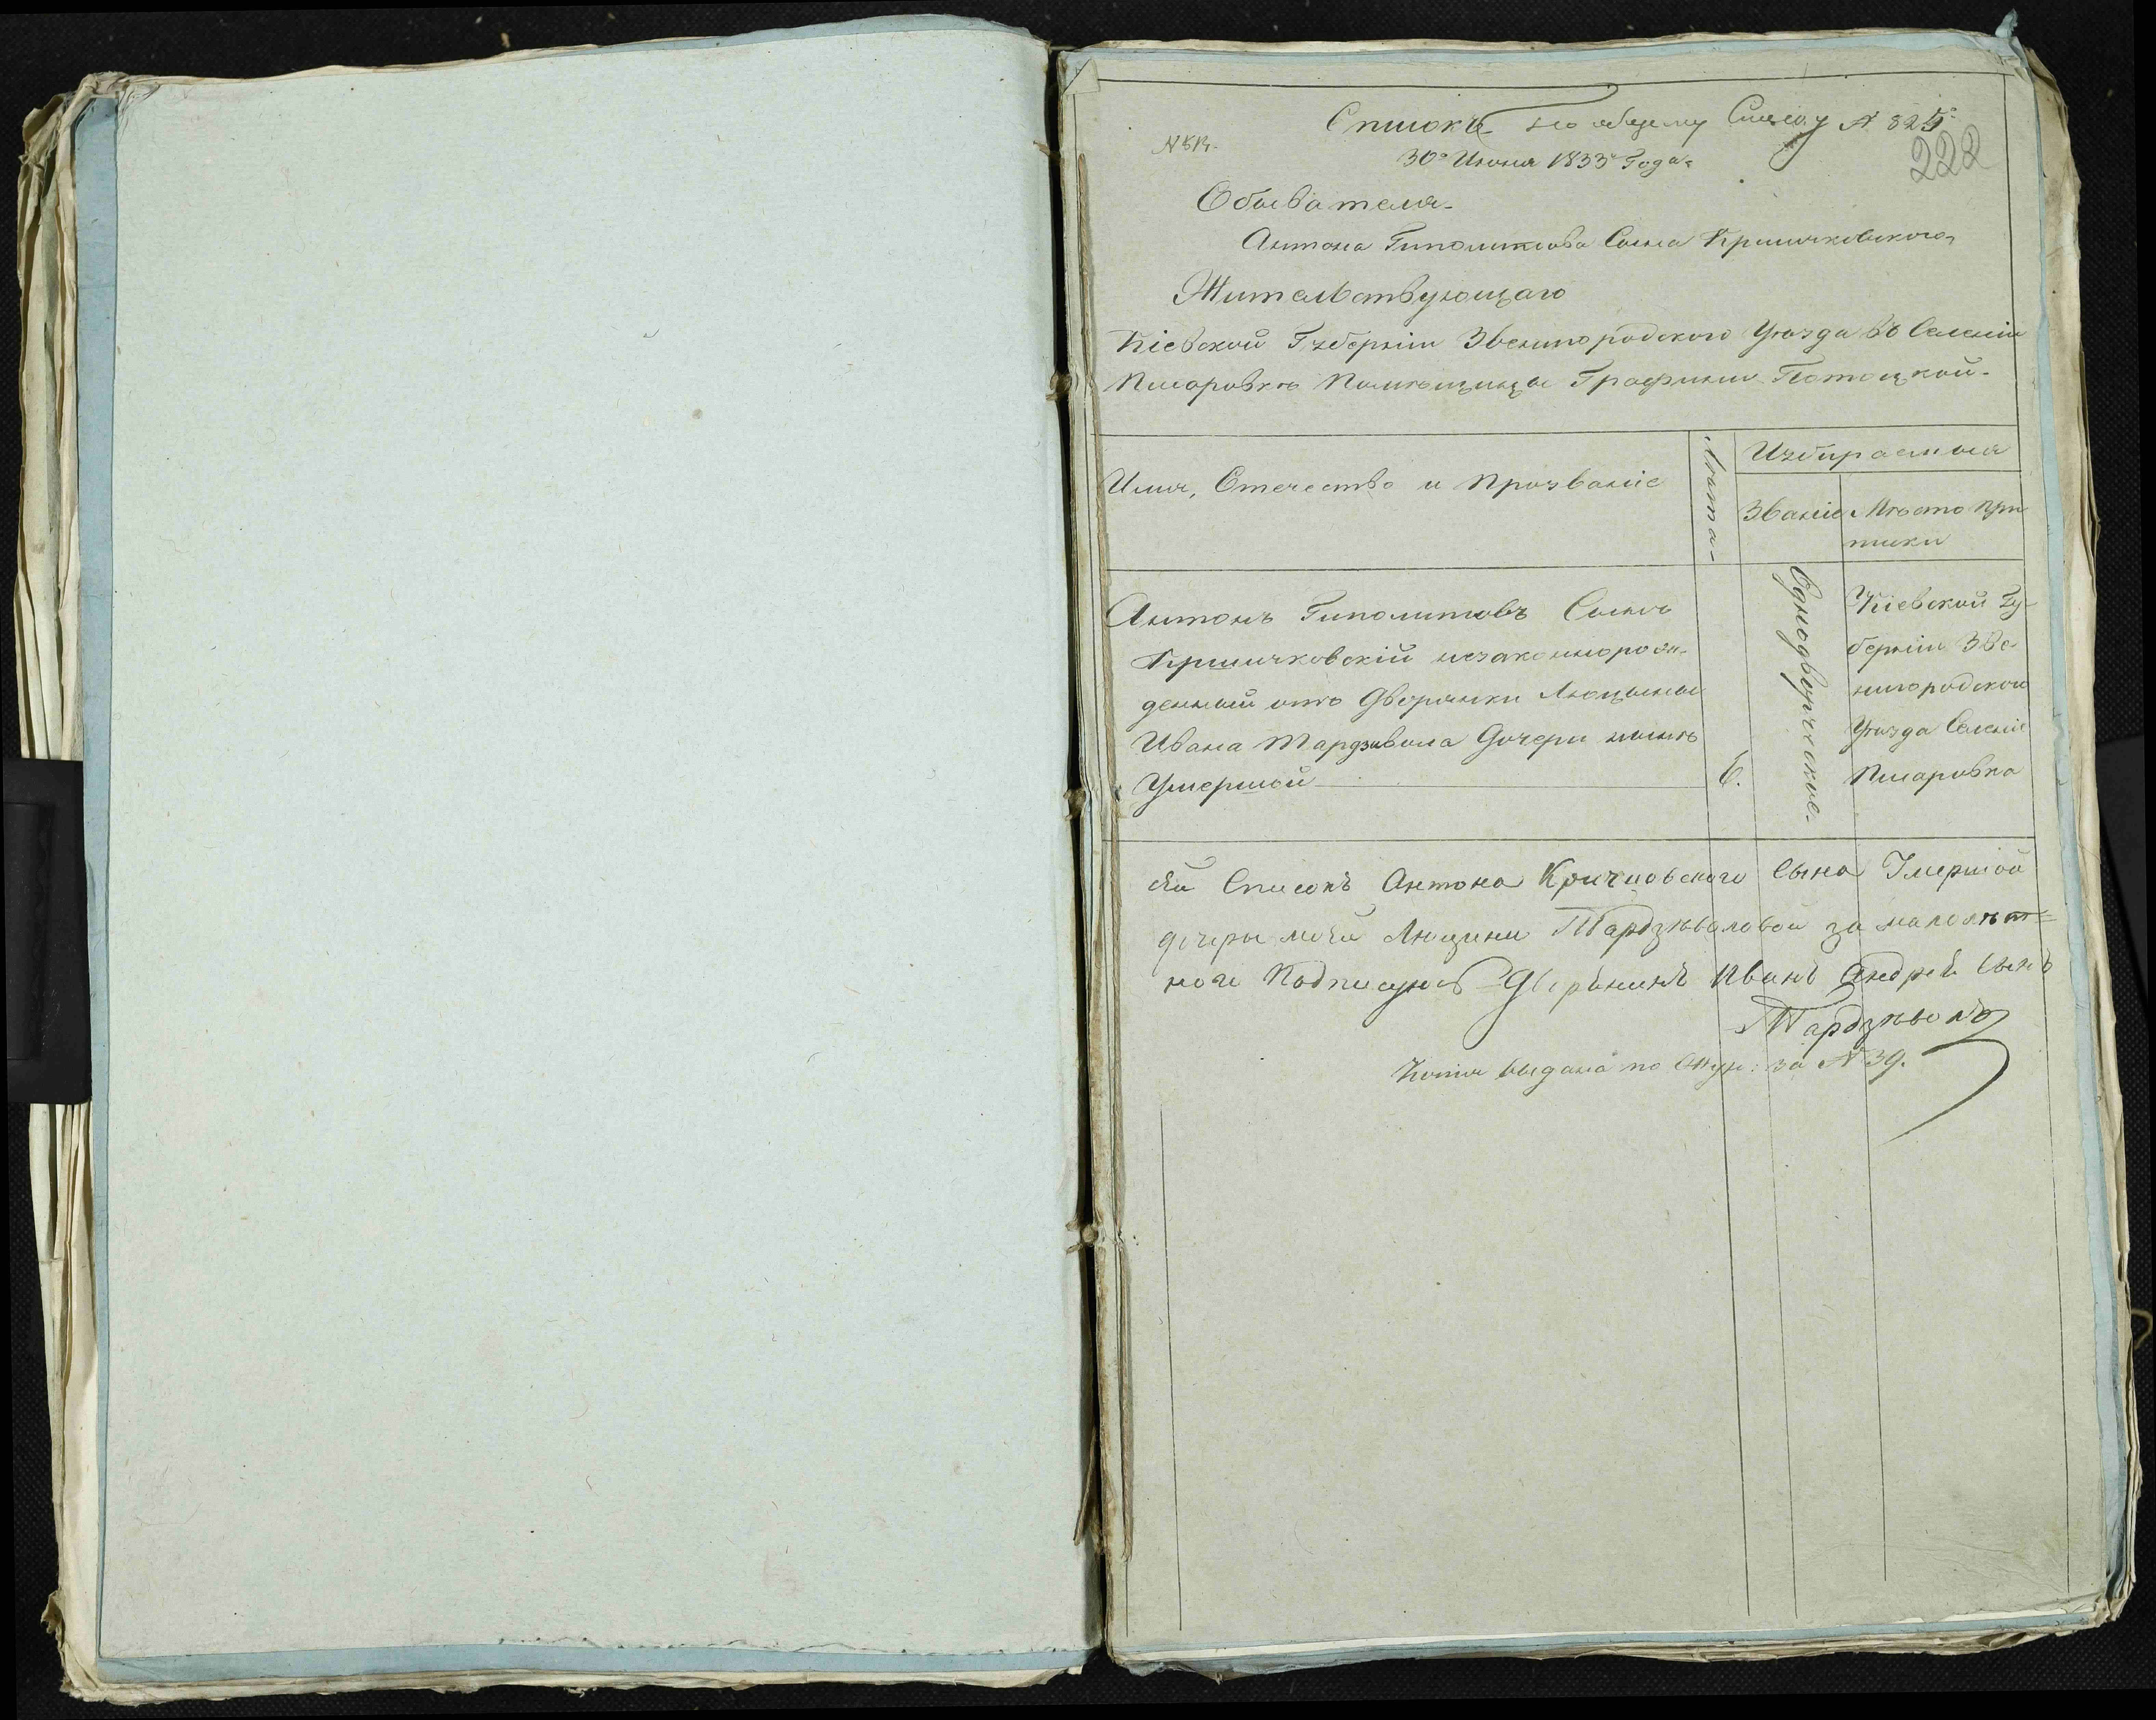 Списокъ по общему Списку № 825.
№ 514.
222
30го Июня 1833 Года
Обывателя
Антона Гиполитова Сына Кришчковского
Жительствующаго
Кіевской Губерніи Звенигородского Уѣзда въ Селеніи
Писаровкѣ Помѣщицы Графини Потоцкой
Имя, Отечество и Прозваніе
Лѣта
Избираемыя
Званіе
Мѣсто При
писки
Антонъ Гиполитовъ Сынъ
Кришчковскій незаконнорож-
денный отъ Дворянки Люцыны
Ивана Тардзивола Дочери нынѣ
Умершой
6.
Однодворческое
Кіевской Гу-
берніи Зве
нигородского
Уѣзда Селеніе
Писаровка
сей Списокъ Антона Кричковского сына Умершой
дочеры моей Люцины Тардзѣволовой за малолѣт=
ного Подписую Дворянинъ Иванъ Андрей Сынъ
Тардзѣволъ
Копія выдана по за № 39.